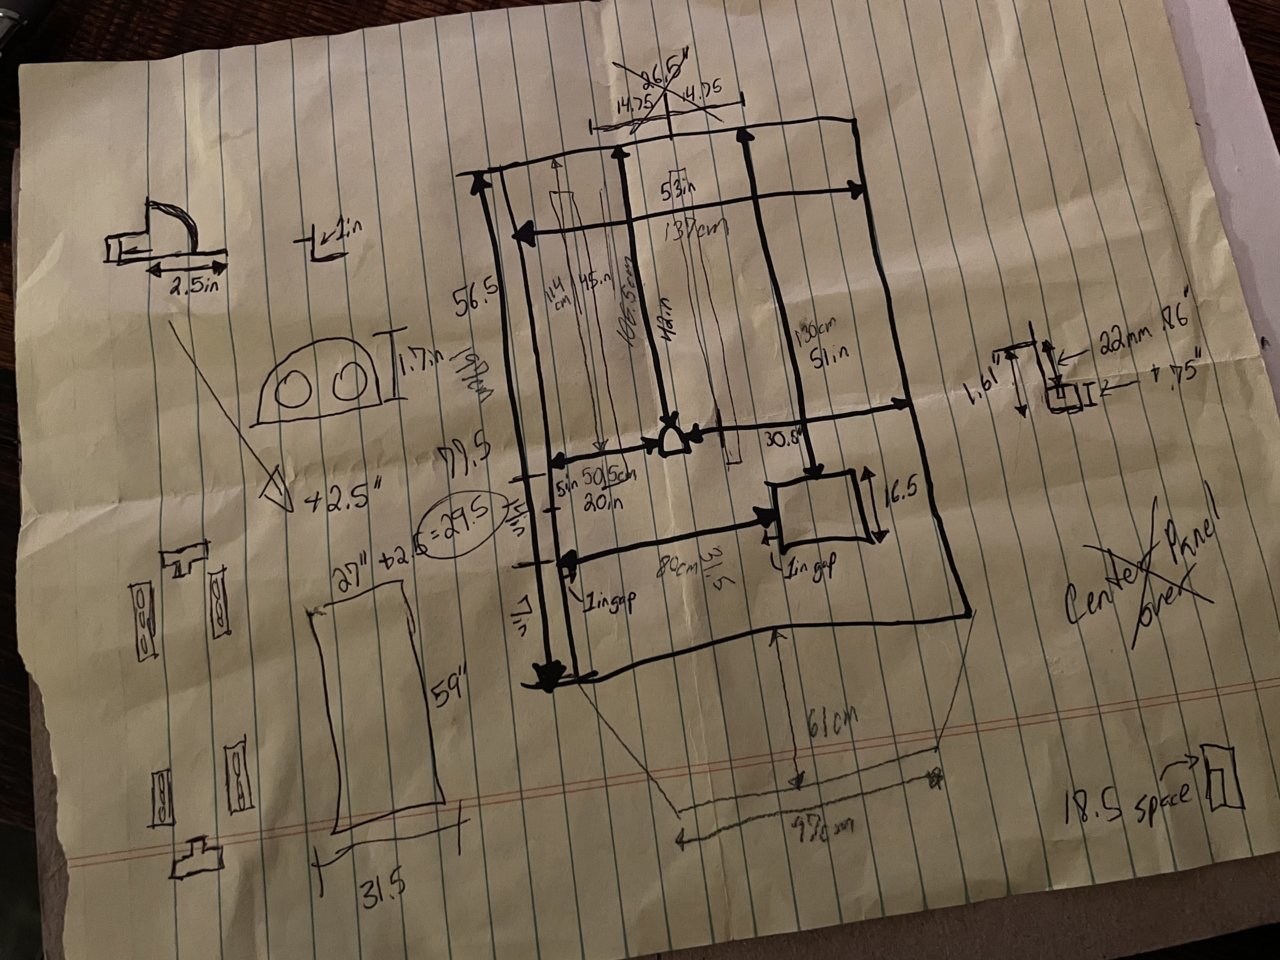 26.5"
14.75 14.75
53in
137cm
1in
2.5in
56.5
114
cm
45in
106.5cm
42in
130cm
51in
1.7in
22mm .86"
1.61"
+.75"
77.5
30.8"
5in
50.5cm
20in
16.5
+2.5"
= 29.5
80cm
31.5
1in gap
1in gap
27" +2.5
59"
Center Panel
over
61cm
97cm
18.5 space
31.5